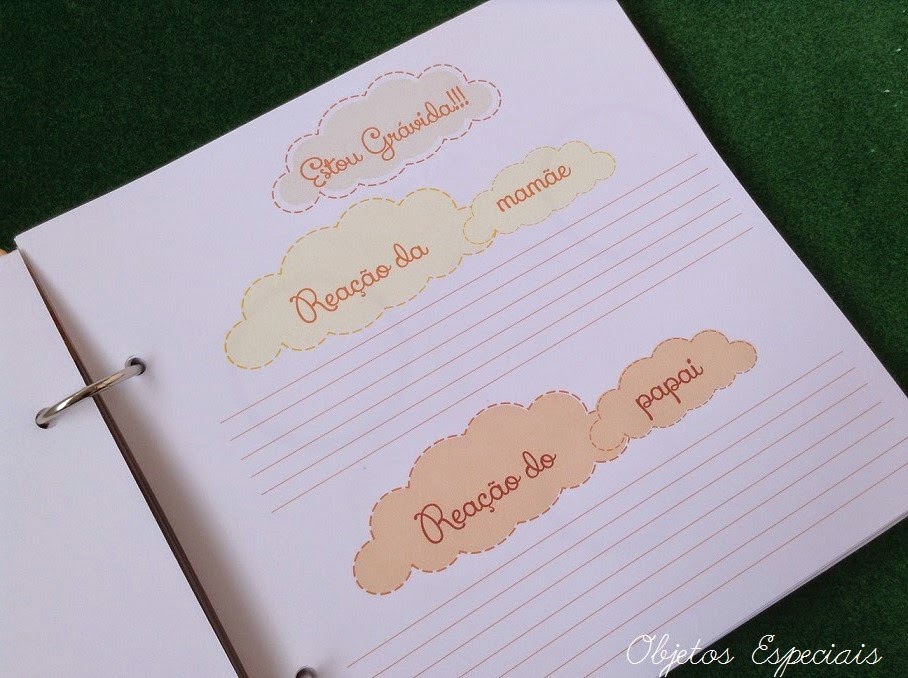 Estou Grávida!!!
Reação da mamãe
Reação do papai
Objetos Especiais